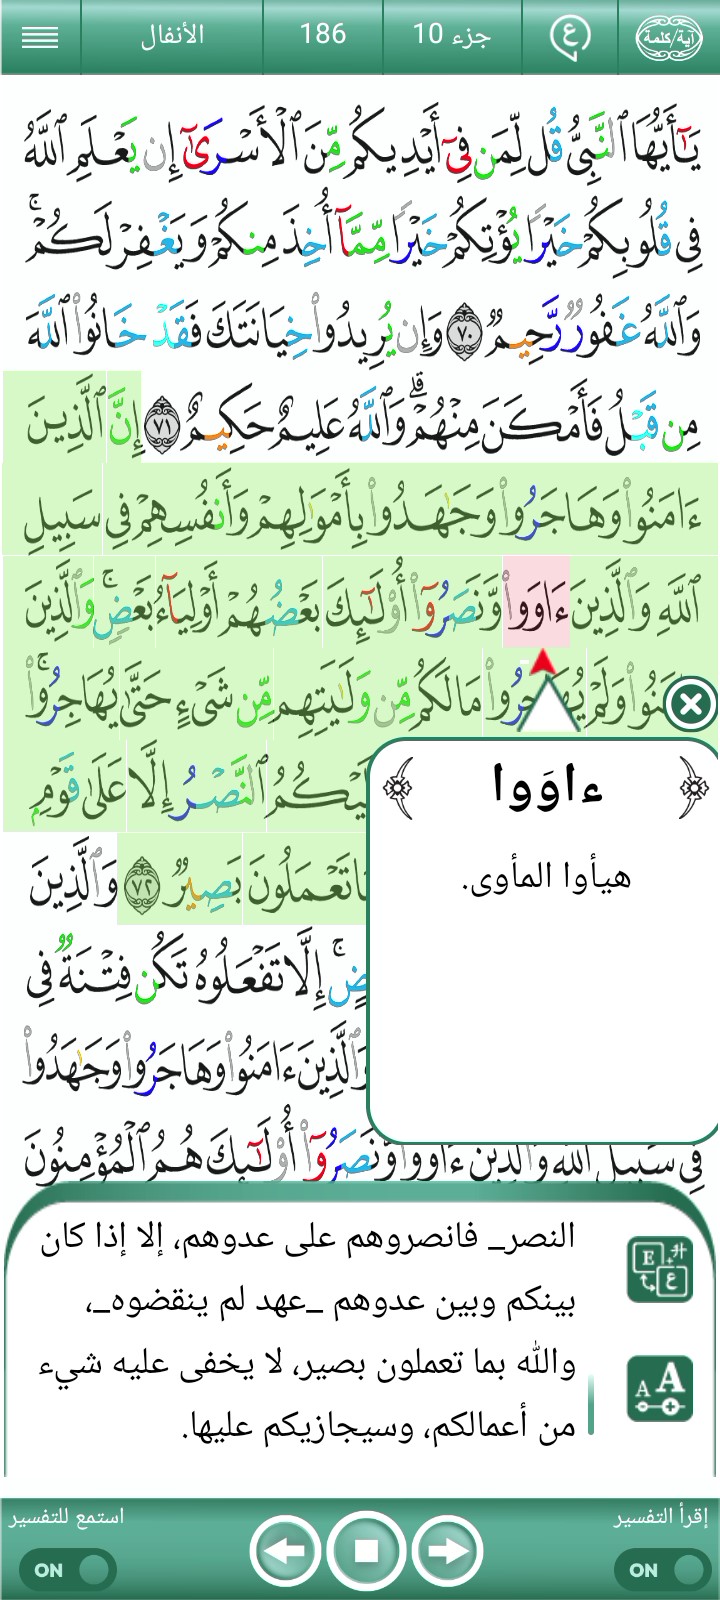 آية/كلمة
ع
جزء 10
186
الأنفال
يَـٰٓأَيُّهَا ٱلنَّبِىُّ قُل لِّمَن فِىٓ أَيْدِيكُم مِّنَ ٱلْأَسْرَىٰٓ إِن يَعْلَمِ ٱللَّهُ
فِى قُلُوبِكُمْ خَيْرًا يُؤْتِكُمْ خَيْرًا مِّمَّآ أُخِذَ مِنكُمْ وَيَغْفِرْ لَكُمْ ۚ
وَٱللَّهُ غَفُورٌ رَّحِيمٌ ٧٠ وَإِن يُرِيدُوا۟ خِيَانَتَكَ فَقَدْ خَانُوا۟ ٱللَّهَ
مِن قَبْلُ فَأَمْكَنَ مِنْهُمْ ۗ وَٱللَّهُ عَلِيمٌ حَكِيمٌ ٧١ إِنَّ ٱلَّذِينَ
ءَامَنُوا۟ وَهَاجَرُوا۟ وَجَـٰهَدُوا۟ بِأَمْوَٰلِهِمْ وَأَنفُسِهِمْ فِى سَبِيلِ
ٱللَّهِ وَٱلَّذِينَ ءَاوَوا۟ وَّنَصَرُوٓا۟ أُو۟لَـٰٓئِكَ بَعْضُهُمْ أَوْلِيَآءُ بَعْضٍ ۚ وَٱلَّذِينَ
وَلَمْ يُهَاجِرُوا۟ مَا لَكُم مِّن وَلَـٰيَتِهِم مِّن شَىْءٍ حَتَّىٰ يُهَاجِرُوا۟ ۚ
ٱلنَّصْرُ إِلَّا عَلَىٰ قَوْمٍ
تَعْمَلُونَ بَصِيرٌ ٧٢ وَٱلَّذِينَ
إِلَّا تَفْعَلُوهُ تَكُن فِتْنَةٌ فِى
وَٱلَّذِينَ ءَامَنُوا۟ وَهَاجَرُوا۟ وَجَـٰهَدُوا۟
فِى سَبِيلِ ٱللَّهِ وَٱلَّذِينَ ءَاوَوا۟ وَّنَصَرُوٓا۟ أُو۟لَـٰٓئِكَ هُمُ ٱلْمُؤْمِنُونَ
﴿ ءاوَوا ﴾
هيأوا المأوى.
النصر_ فانصروهم على عدوهم، إلا إذا كان
بينكم وبين عدوهم _عهد لم ينقضوه_،
والله بما تعملون بصير، لا يخفى عليه شيء
من أعمالكم، وسيجازيكم عليها.
إقرأ التفسير
استمع للتفسير
ON
ON